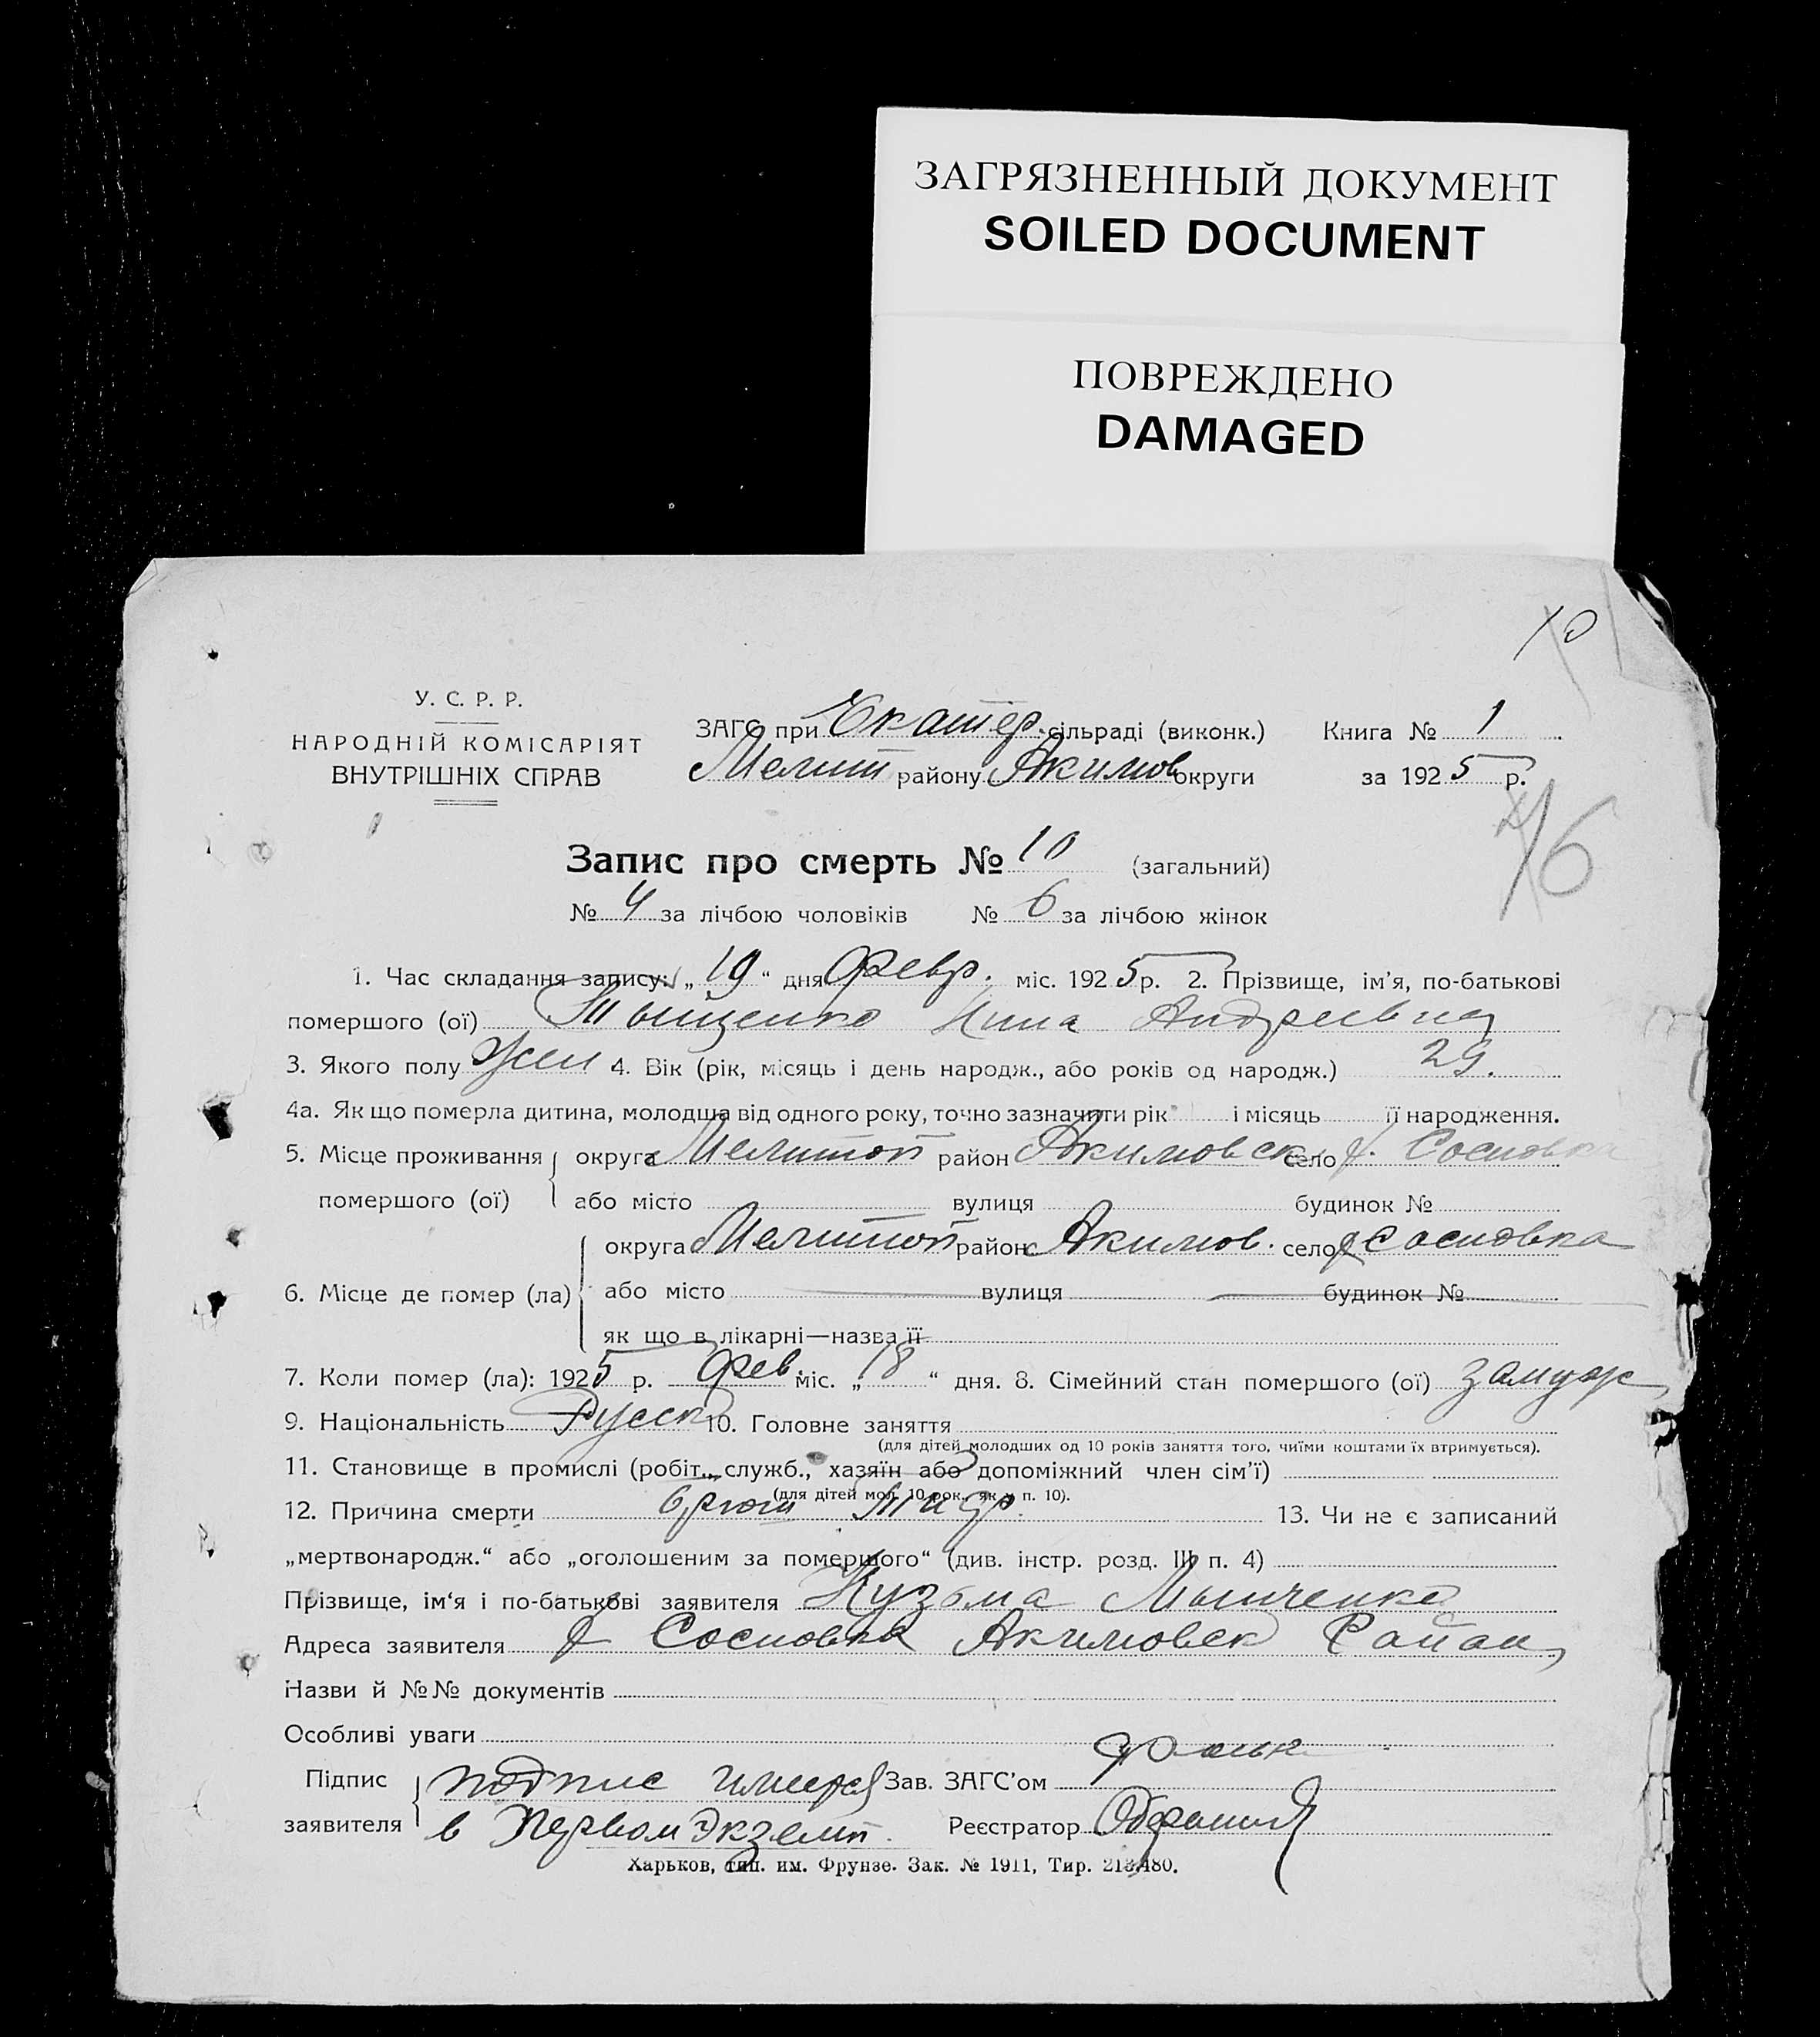 ЗАГРЯЗНЕННЫЙ ДОКУМЕНТ
SOILED DOCUMENT
ПОВРЕЖДЕНО
DAMAGED
10
У. С. Р. Р.
НАРОДНІЙ КОМІСАРІЯТ
ВНУТРІШНІХ СПРАВ
ЗАГС при Екатер. сільраді (виконк.) Книга № 1
Мелит району Акимов округи за 1925 р.
16
Запис про смерть № 10 (загальний)
№ 4 за лічбою чоловіків № 6 за лічбою жінок
1. Час складання запису: „19“ дня Февр. міс. 1925 р. 2. Прізвище, ім’я, по-батькові
помершого (ої) Тыщенко Нина Андреевна
3. Якого полу Жен 4. Вік (рік, місяць і день народж., або років од народж.) 29.
4а. Як що померла дитина, молодша від одного року, точно зазначити рік і місяць її народження.
5. Місце проживання округа Мелитоп район Акимовск село х. Сосновка
помершого (ої) або місто вулиця будинок №
округа Мелитоп район Акимов. село х Сосновка
6. Місце де помер (ла) або місто вулиця будинок №
як що в лікарні—назва її
7. Коли помер (ла): 1925 р. Фев. міс. „18“ дня. 8. Сімейний стан помершого (ої) замуж
9. Національність Русск 10. Головне заняття
(для дітей молодших од 10 років заняття того, чиїми коштами їх втримується).
11. Становище в промислі (робіт., служб., хазяїн або допоміжний член сім’ї)
(для дітей мол. 10 рок. як у п. 10).
12. Причина смерти брюш тиф. 13. Чи не є записаний
„мертвонародж.“ або „оголошеним за помершого“ (див. інстр. розд. III п. 4)
Прізвище, ім‘я і по-батькові заявителя Кузьма
Адреса заявителя х Сосновка Акимовск Район
Назви й №№ документів
Особливі уваги
Підпис подпис имеется Зав. ЗАГС’ом
заявителя в Первом Экземп. Реєстратор
Харьков, тип. им. Фрунзе. Зак. № 1911, Тир. 213.480.